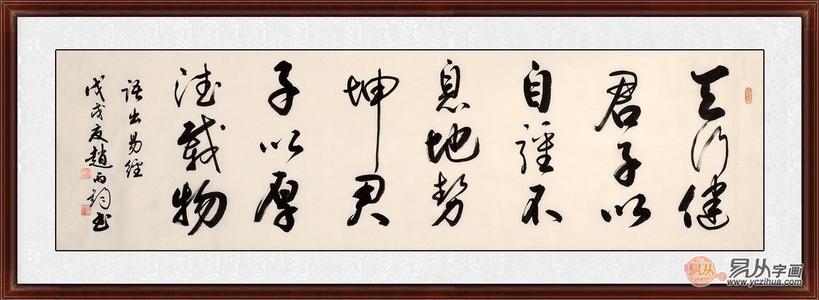 天行健
君子以
自強不
息地勢
坤君
子以厚
德載物
語出易經
戊戌夏趙丙鈞書
易从字画
www.yczihua.com